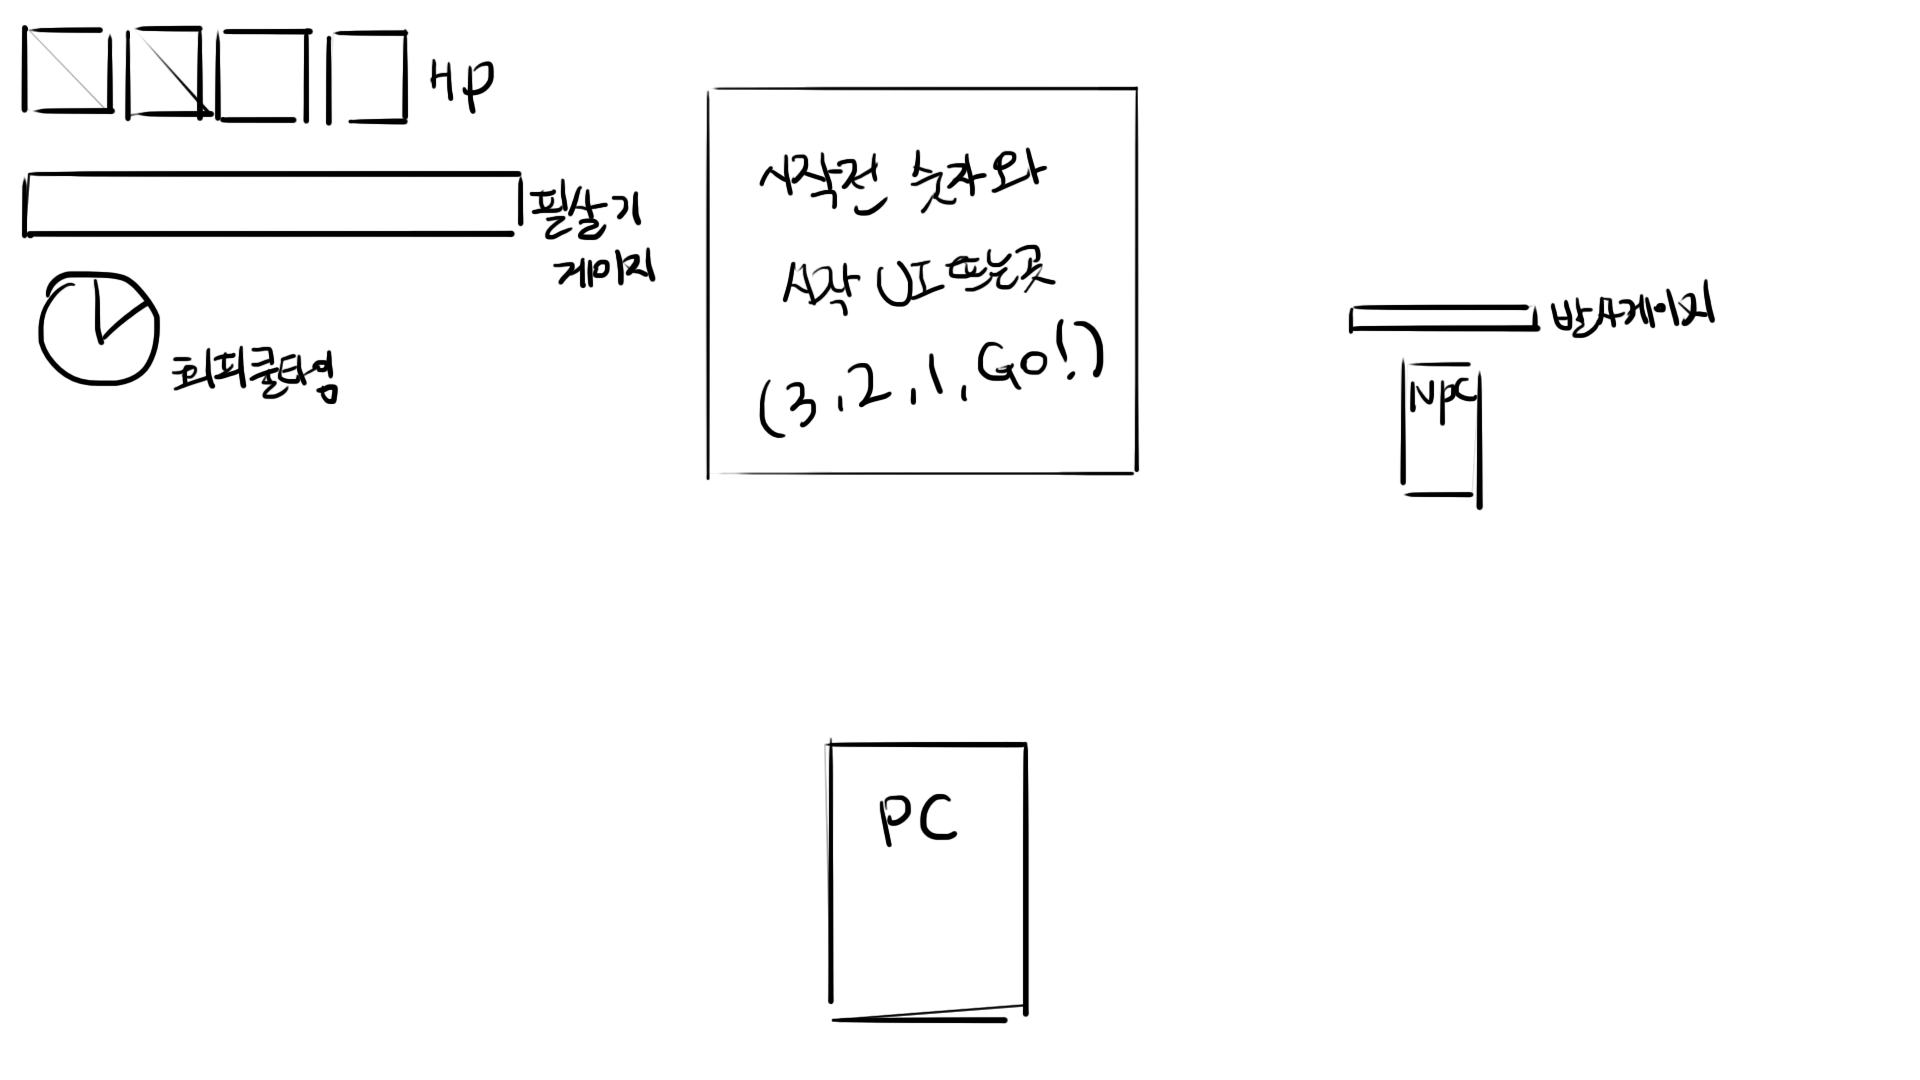 Hp
필살기
게이지
회피쿨타임
시작전 숫자와
시작 UI 뜨는곳
(3, 2, 1, Go!)
발사게이지
NpC
PC